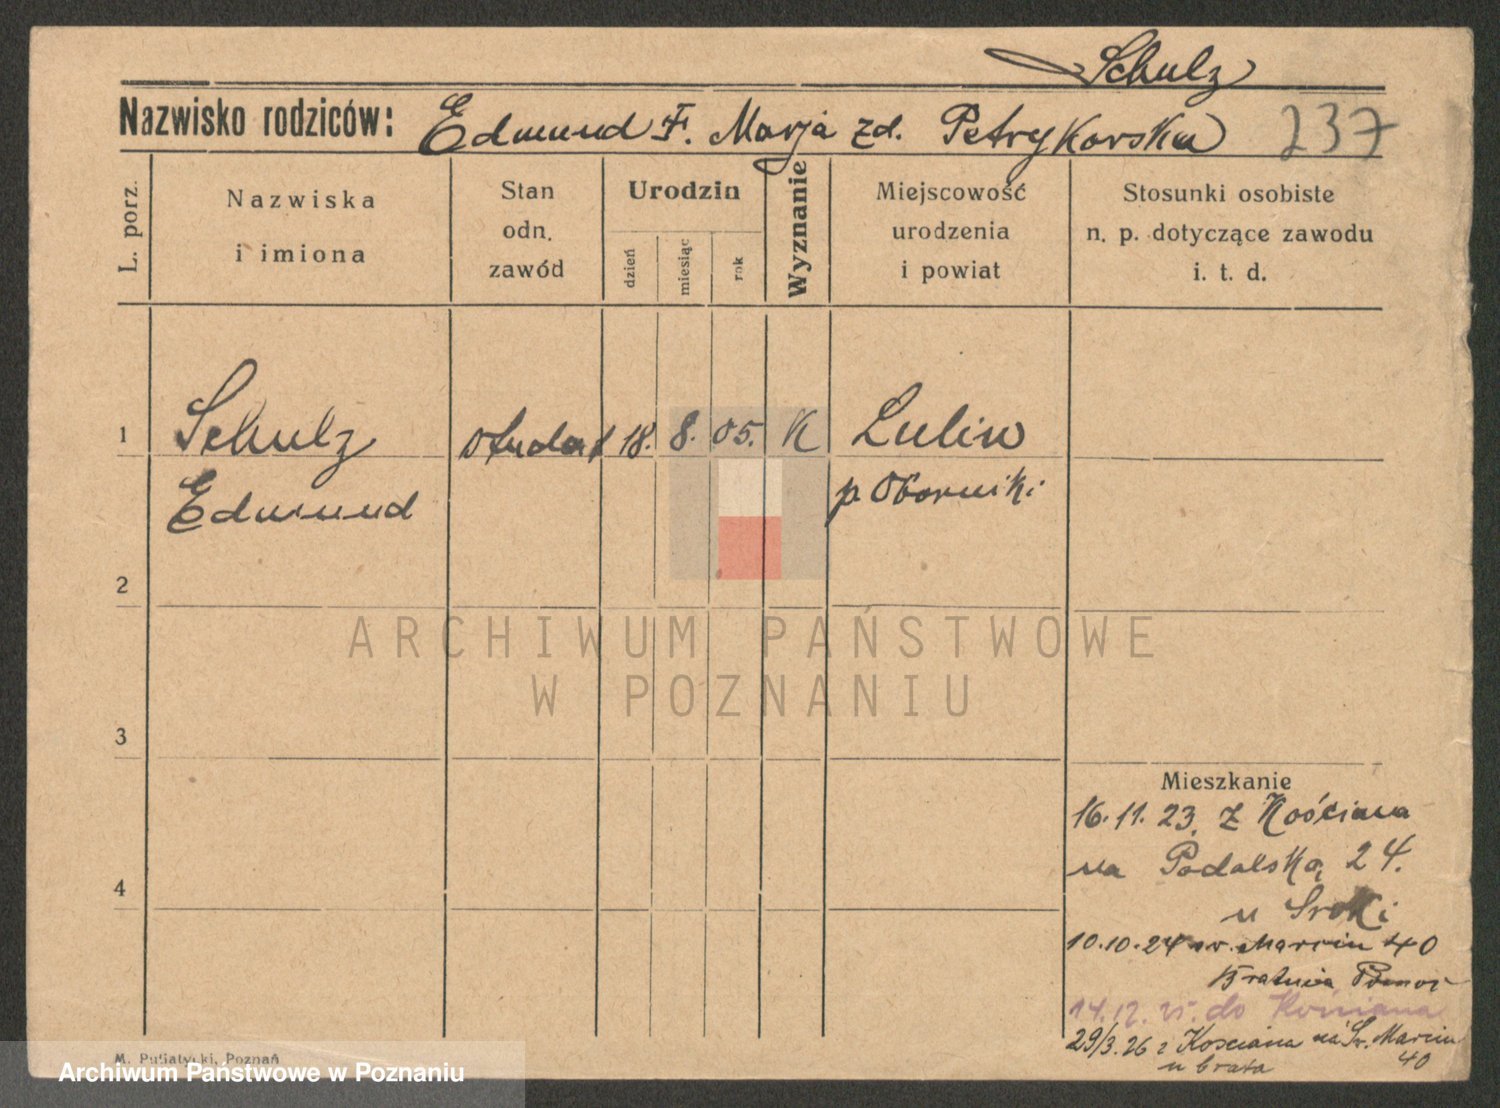 Schulz
Nazwisko rodziców: Edmund F. Marja zd. Petrykowska 237
L. porz.
Nazwiska
i imiona
Stan
odn.
zawód
Urodzin
dzień
miesiąc
rok
Wyznanie
Miejscowość
urodzenia
i powiat
Stosunki osobiste
n. p. dotyczące zawodu
i. t. d.
1 Schulz student 18. 8. 05. K Lulin
Edmund p Oborniki
2
ARCHIWUM PAŃSTWOWE
W POZNANIU
3
Mieszkanie
16. 11. 23. z Kościana
na Podolską 24.
4
u Sroki
10.10.24 św. Marcin 40
Bratnia Pomoc
14.12.25. do Kościana
29/3.26 z Kościana na Św. Marcin
40
u brata
M. Putiatycki, Poznań
Archiwum Państwowe w Poznaniu